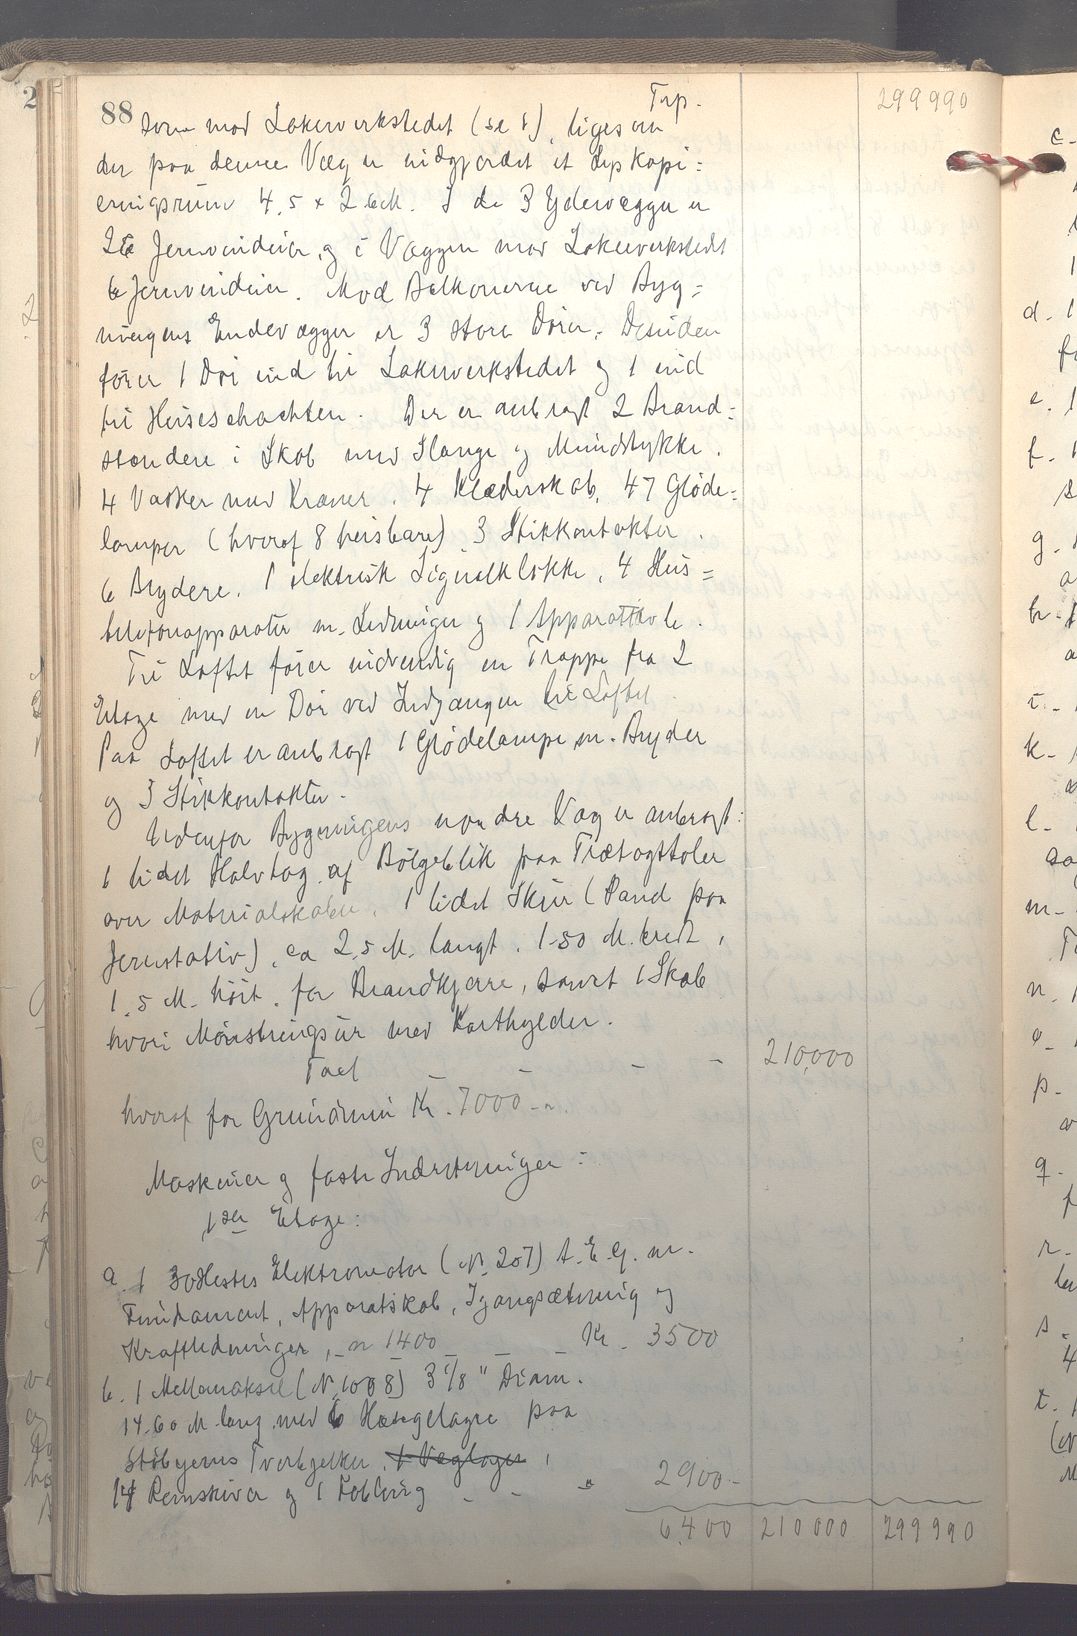 88 Trp. 299990
dører mod Lakerverkstedet (se s), ligesom
der paa denne Væg er indgjerdet et Lyskopi=
eringsrum 4,5 x 2,6 M. I de 3 Ydervægger er
26 Jernvinduer, og i Væggen mod Lakerverkstedet
6 Jernvinduer. Mod Balkonerne ved Byg=
ningens Endevægger er 3 store Dører. Desuden
fører 1 Dør ind til Lakerverkstedet og 1 ind
til Heiseschachten. Der er anbragt 2 Brand=
standere i Skab med Slange og Mundstykke.
4 Vasker med Kraner. 4 Klæderskab, 47 Gløde=
lamper (hvoraf 8 heisbare), 3 Stikkontakter.
6 Brydere. 1 elektrisk Signalklokke, 4 Hus=
telefonapparater m. Ledninger og 1 Apparattavle.
Til Loftet fører indvendig en Trappe fra 2
Etage med en Dør ved Indgangen til Loftet.
Paa Loftet er anbragt 1 Glødelampe m. Bryder
og 3 Stikkontakter.
Udenfor Bygningens nordre Væg er anbragt:
1 lidet Halvtag af Bølgeblik paa Trætagstoler
over Materialskabene. 1 lidet Skur (Pand paa
Jernstativ), ca 2,5 M. langt. 1.50 M. bredt,
1,5 M. høit. for Brandkjærre, samt 1 Skab
hvori Mønstringsur med Korthylder.
Taxt - - - - 210,000
hvoraf for Grundmur Kr. 7000 -".
Maskiner og faste Indretninger:
1ste Etage:
a. 1 30 Hestes Elektromotor (N. 207) A.E.G. m.
Fundament, Apparatskab, Igangsætning og
Kraftledninger, - n 1400 - - - Kr. 3500
b. 1 Mellemaksel (N. 1008) 3 1/8" Diam.
14.60 M. lang med 6 Hængelagre paa
Støbjerns Tverbjelker. 1 Væglager,
14 Remskiver og 1 Kobling - - " 2900.-
6,400 210000 299990